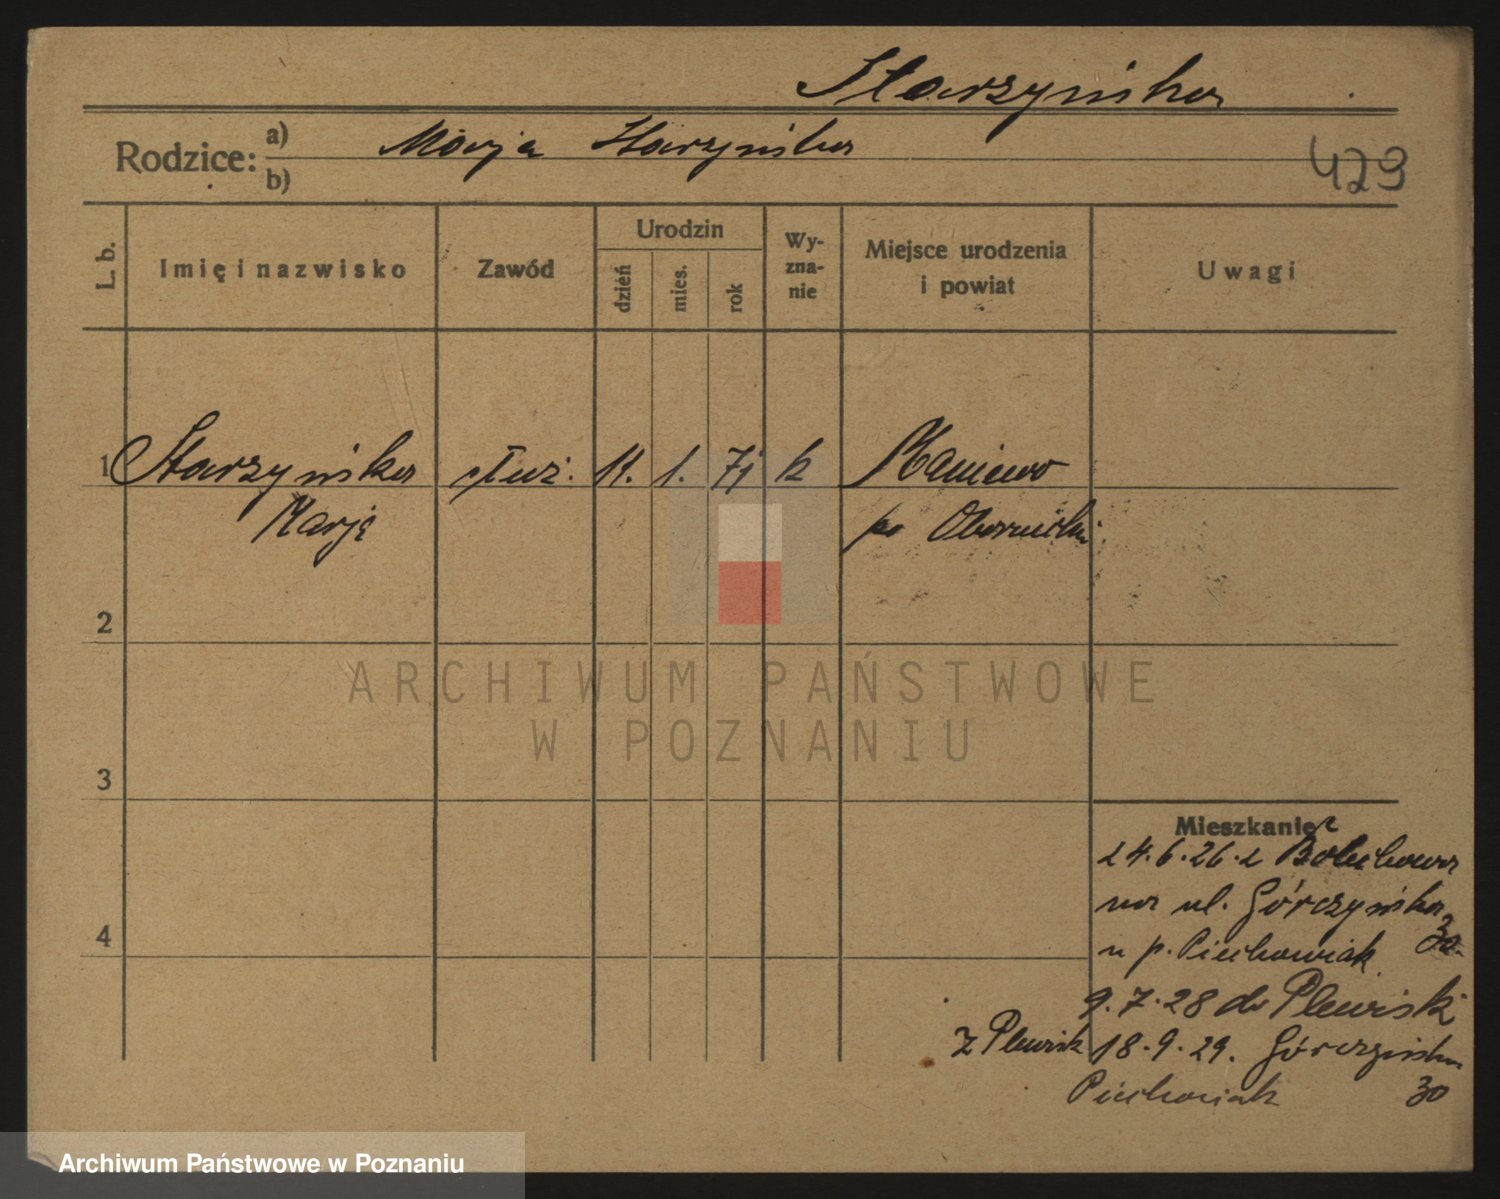 Starzyńska
Rodzice: a) Marja Starzyńska
b)
429
L. b. Imię i nazwisko Zawód Urodzin dzień mies. rok Wyznanie Miejsce urodzenia i powiat Uwagi
1 Starzyńska służ. 11. 1. 71 k Maniewo
Marja po Obornicki
2
ARCHIWUM PAŃSTWOWE
W POZNANIU
3
Mieszkanie
24.6.26. z Bolechowa
na ul. Górczyńska
4 u p. Piechowiak 30.
9.7.28 do Plewisk
z Plewisk 18.9.29. Górczyńska
Piechowiak 30
Archiwum Państwowe w Poznaniu